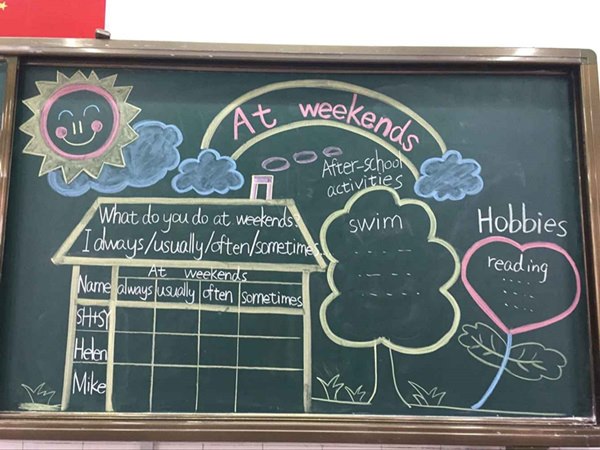 At weekends
After-school
activities
What do you do at weekends?
I always/usually/often/sometimes
swim
Hobbies
reading
At weekends
Name always usually often sometimes
SH+SY
Helen
Mike